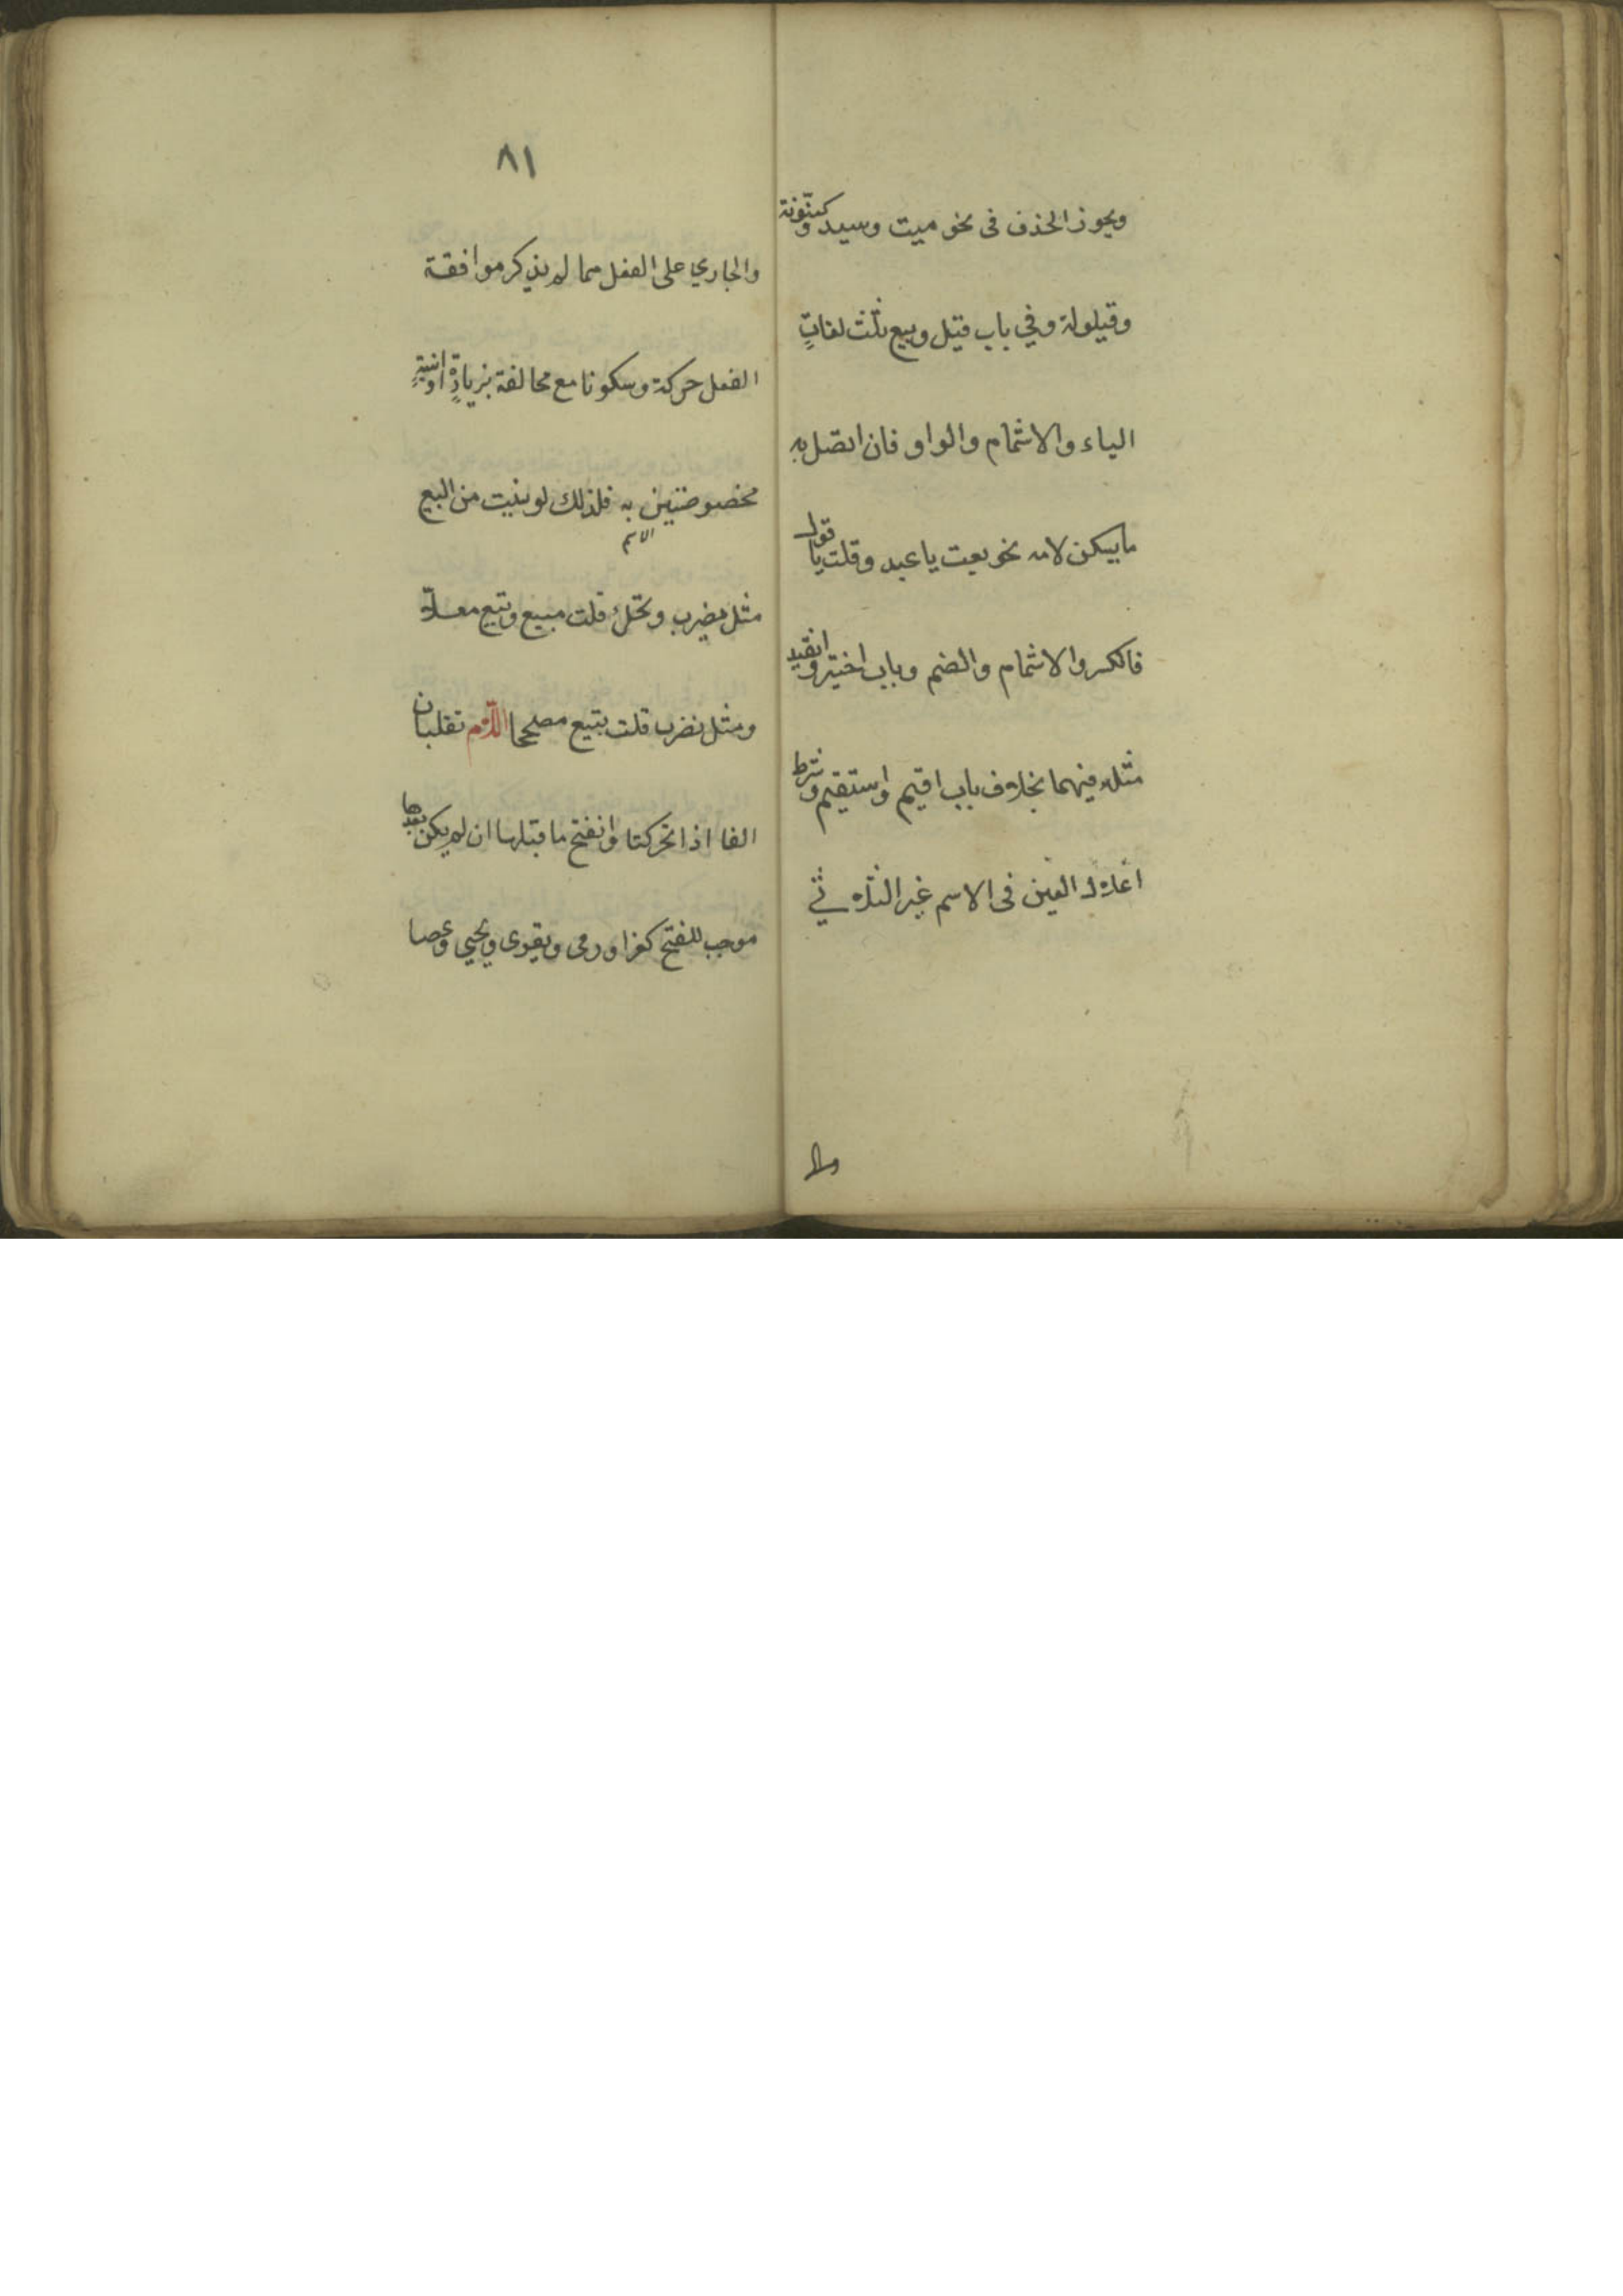 ويجوز الحذف فى نحو ميت وسيد وكينونة
وقيلولة وفي باب قيل وبيع ثلث لغاتٍ
الياء والاشمام والواو فان اتصل به
ما يسكن لامه نحو بعت يا عبد وقلت يا قول
فالكسر والاشمام والضم وباب اختير وانقيد
مثله فيهما بخلاف باب اقيم واستقيم وشرط
اعلال العين فى الاسم غير الثلاثي
والـ
٨١
والجاري على الفعل مما لم يذكر موافقة
الفعل حركة وسكونا مع مخالفة بزيادةٍ او بنيةٍ
مخصوصتين به فلذلك لو بنيت من البيع
الاسم
مثل مضرب وتحلئ قلت مبيع وتبيع معلاّ
ومثل نضرب قلت تبيع مصححا اللام تقلبان
الفا اذا تحركتا وانفتح ما قبلها ان لم يكن بعدها
موجب للفتح كغزا ورمى ويقوى ويحيي وعصا